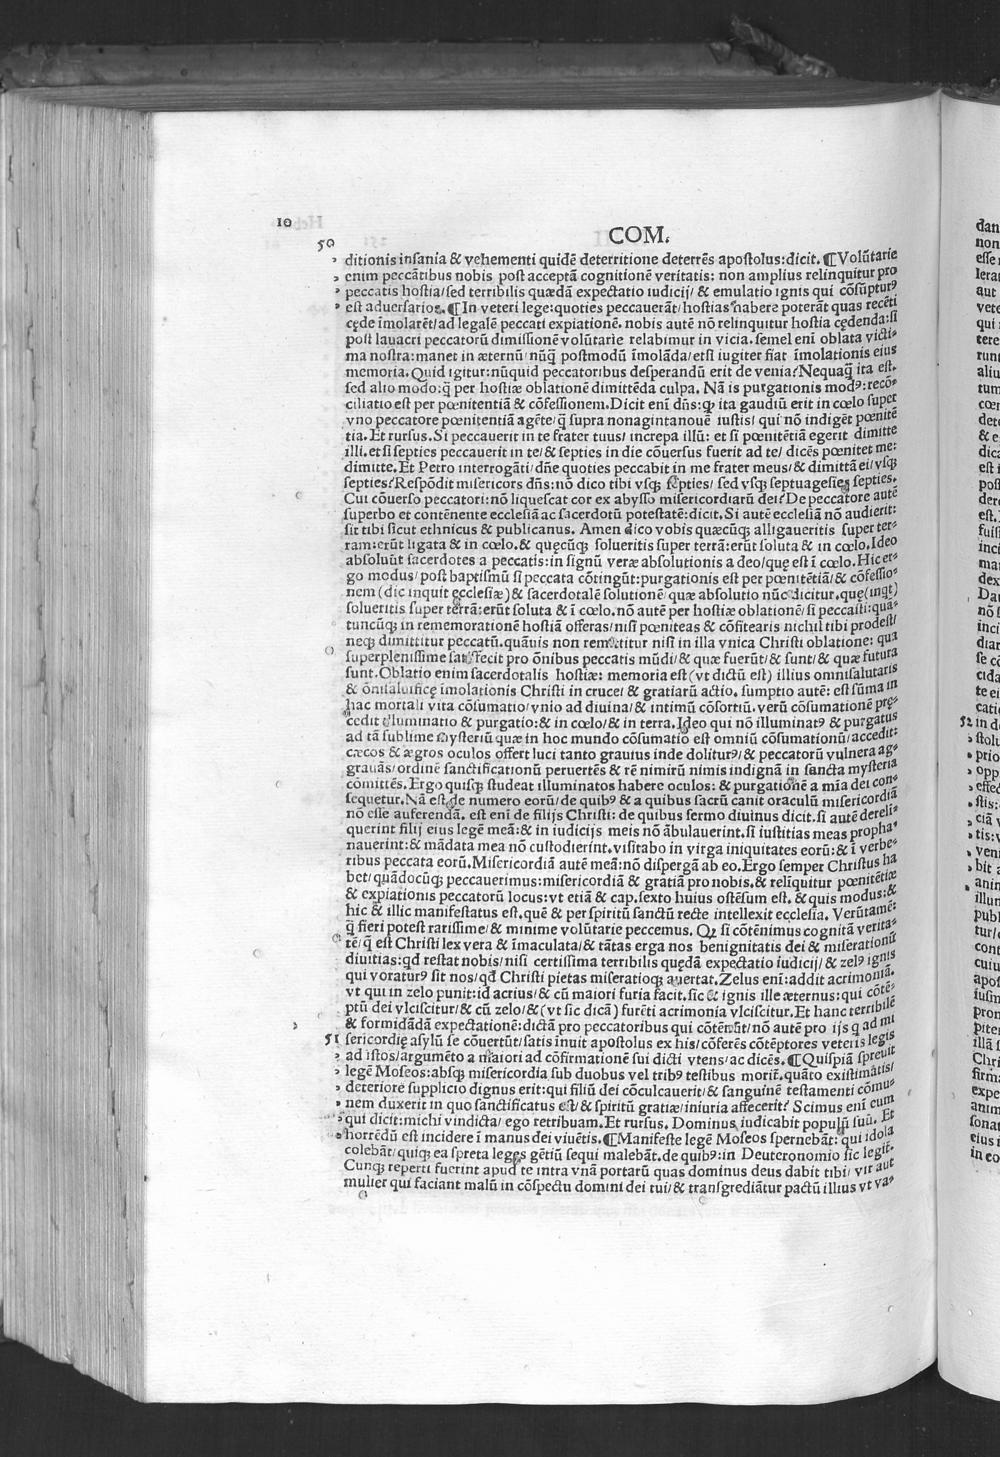 10
COM.
50
ditionis insania & vehementi quidē deterritione deterrēs apostolus: dicit. ¶ Volūtarie
enim peccātibus nobis post acceptā cognitionē veritatis: non amplius relinquitur pro
peccatis hostia/ sed terribilis quædā expectatio iudicij/ & emulatio ignis qui cōsūptur⁹
est aduersarios. ¶ In veteri lege: quoties peccauerāt/ hostias habere poterāt quas recēti
cęde īmolarēt/ ad legalē peccati expiationē. nobis autē nō relinquitur hostia cędenda: si
post lauacri peccatorū dimissionē volūtarie relabimur in vicia. semel enī oblata victi⸗
ma nostra: manet in æternū/ nūq̄ postmodū īmolāda/ etsi iugiter fiat īmolationis eius
memoria. Quid igitur: nūquid peccatoribus desperandū erit de venia? Nequaq̄ ita est.
sed alio modo: q̄ per hostiæ oblationē dimittēda culpa. Nā is purgationis mod⁹: recō⸗
ciliatio est per pœnitentiā & cōfessionem. Dicit enī dn̄s: ꝙ ita gaudiū erit in cœlo super
vno peccatore pœnitentiā agēte/ q̄ supra nonagintanouē iustis/ qui nō indigēt pœnitē
tia. Et rursus. Si peccauerit in te frater tuus/ increpa illū: et si pœnitētiā egerit dimitte
illi. et si septies peccauerit in te/ & septies in die cōuersus fuerit ad te/ dicēs pœnitet me:
dimitte. Et Petro interrogāti/ dn̄e quoties peccabit in me frater meus/ & dimittā ei/ vsqꝫ
septies? Respōdit misericors dn̄s: nō dico tibi vsqꝫ septies/ sed vsqꝫ septuagesies septies.
Cui cōuerso peccatori: nō liquescat cor ex abysso misericordiarū dei? De peccatore autē
superbo et contēnente ecclesiā ac sacerdotū potestatē: dicit. Si autē ecclesiā nō audierit:
sit tibi sicut ethnicus & publicanus. Amen dico vobis quæcūqꝫ alligaueritis super ter⸗
ram: erūt ligata & in cœlo. & quęcūqꝫ solueritis super terrā: erūt soluta & in cœlo. Ideo
absoluūt sacerdotes a peccatis: in signū veræ absolutionis a deo/ quę est ī cœlo. Hic er⸗
go modus/ post baptismū si peccata cōtingūt: purgationis est per pœnitētiā/ & cōfessio⸗
nem (dic inquit ecclesiæ) & sacerdotalē solutionē/ quæ absolutio nūc dicitur. quę (inqt)
solueritis super terrā: erūt soluta & ī cœlo. nō autē per hostiæ oblationē/ si peccasti: qua⸗
tuncūqꝫ in rememorationē hostiā offeras/ nisi pœniteas & cōfitearis nichil tibi prodest/
neqꝫ dimittitur peccatū. quāuis non remittitur nisi in illa vnica Christi oblatione: qua
superplenissime satisfecit pro ōnibus peccatis mūdi/ & quæ fuerūt/ & sunt/ & quæ futura
sunt. Oblatio enim sacerdotalis hostiæ: memoria est (vt dictū est) illius omnisalutaris
& ōnisaluificę īmolationis Christi in cruce/ & gratiarū actio. sumptio autē: est sūma in
hac mortali vita cōsumatio/ vnio ad diuina/ & intimū cōsortiū. verū cōsumationē pręˢ
cedit illuminatio & purgatio: & in cœlo/ & in terra. Ideo qui nō illuminat⁹ & purgatus
ad tā sublime mysteriū quæ in hoc mundo cōsumatio est omniū cōsumationū/ accedit:
cæcos & ægros oculos offert luci tanto grauius inde dolitur⁹/ & peccatorū vulnera ag⸗
grauās/ ordinē sanctificationū peruertēs & rē nimirū nimis indignā in sancta mysteria
comittēs. Ergo quisqꝫ studeat illuminatos habere oculos: & purgationē a mīa dei con⸗
sequetur. Nā est de numero eorū/ de quib⁹ & a quibus sacrū canit oraculū misericordiā
nō esse auferendā. est enī de filijs Christi: de quibus sermo diuinus dicit. si autē dereli⸗
querint filij eius legē meā: & in iudicijs meis nō ābulauerint. si iustitias meas propha⸗
nauerint: & mādata mea nō custodierint. visitabo in virga iniquitates eorū: & ī verbe⸗
ribus peccata eorū. Misericordiā autē meā: nō dispergā ab eo. Ergo semper Christus ha
bet/ quādocūqꝫ peccauerimus: misericordiā & gratiā pro nobis. & relīquitur pœnitētiæ
& expiationis peccatorū locus: vt etiā & cap. sexto huius ostēsum est. & quis modus: &
hic & illic manifestatus est. quē & per spiritū sanctū recte intellexit ecclesia. Verūtamē:
q̄ fieri potest rarissime/ & minime volūtarie peccemus. Qꝫ si cōtēnimus cognitā verita⸗
tē/ q̄ est Christi lex vera & īmaculata/ & tātas erga nos benignitatis dei & miserationū
diuitias: qd restat nobis/ nisi certissima terribilis quędā expectatio iudicij/ & zel⁹ ignis
qui voratur⁹ sit nos/ qd Christi pietas miseratioqꝫ auertat. Zelus enī: addit acrimoniā.
vt qui in zelo punit: id acrius/ & cū maiori furia facit. sic & ignis ille æternus: qui cōtē⸗
ptū dei vlciscitur/ & cū zelo/ & (vt sic dicā) furēti acrimonia vlciscitur. Et hanc terribilē
& formidādā expectationē: dictā pro peccatoribus qui cōtēnūt/ nō autē pro ijs q ad mi
51 sericordię asylū se cōuertūt/ satis īnuit apostolus ex his/ cōferēs cōtēptores veteris legis
ad istos/ argumēto a maiori ad cōfirmationē sui dicti vtens/ ac dicēs. ¶ Quispiā spreuit
legē Moseos: absqꝫ misericordia sub duobus vel trib⁹ testibus morit̄. quāto existimatis/
deteriore supplicio dignus erit: qui filiū dei cōculcauerit/ & sanguinē testamenti cōmu⸗
nem duxerit in quo sanctificatus est/ & spiritū gratiæ/ iniuria affecerit? Scimus enī eum
qui dicit: michi vindicta/ ego retribuam. Et rursus. Dominus iudicabit populū suū. Et
horrēdū est incidere ī manus dei viuētis. ¶ Manifeste legē Moseos spernebāt: qui idola
colebāt/ quiqꝫ ea spreta leges gētiū sequi malebāt. de quib⁹: in Deuteronomio sic legit̄.
Cunqꝫ reperti fuerint apud te intra vnā portarū quas dominus deus dabit tibi/ vir aut
mulier qui faciant malū in cōspectu domini dei tui/ & transgrediātur pactū illius vt va⸗
52